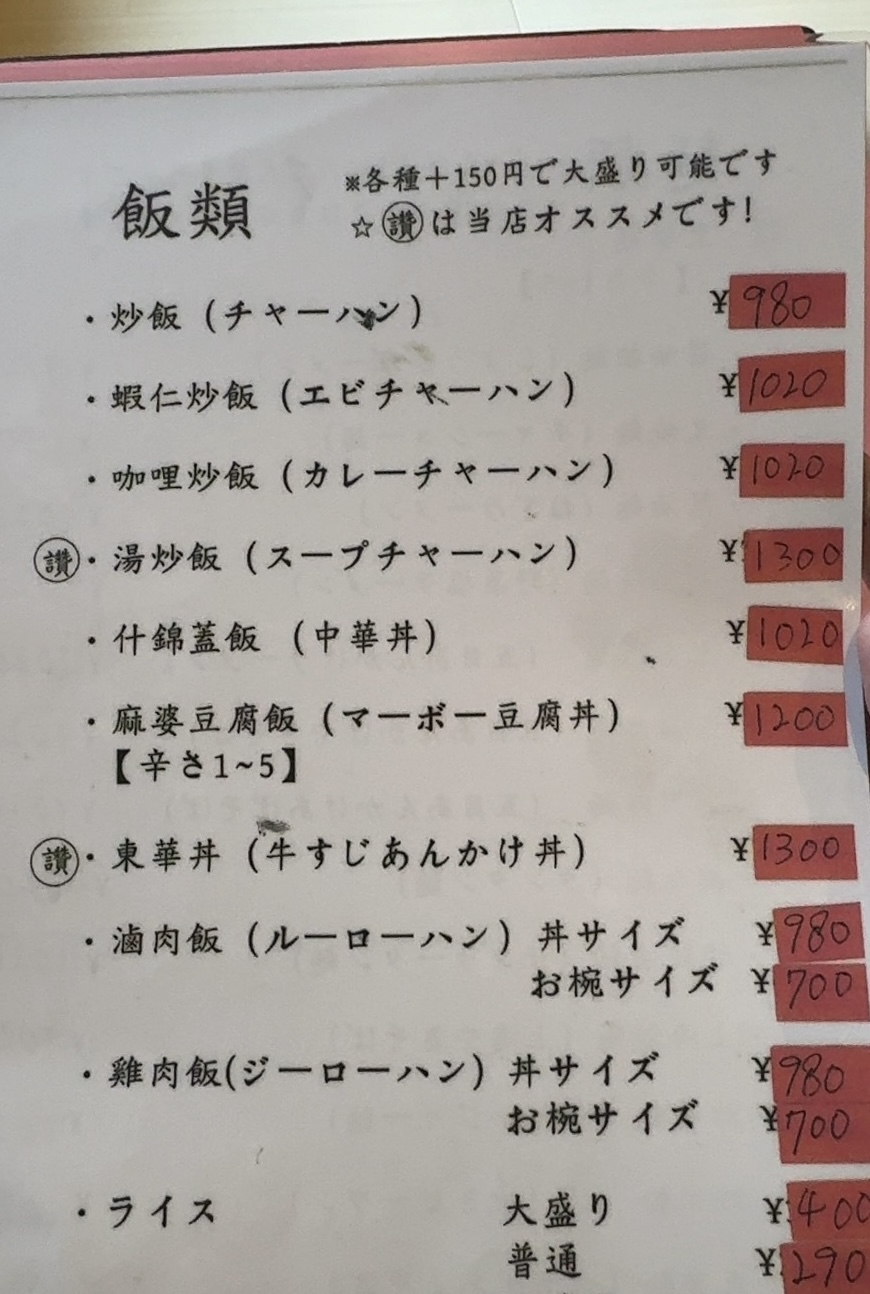 飯類
※各種＋150円で大盛り可能です
☆㊝は当店オススメです!
・炒飯（チャーハン） ¥980
・蝦仁炒飯（エビチャーハン） ¥1020
・咖哩炒飯（カレーチャーハン） ¥1020
讚・湯炒飯（スープチャーハン） ¥1300
・什錦蓋飯（中華丼） ¥1020
・麻婆豆腐飯（マーボー豆腐丼） ¥1200
【辛さ1~5】
讚・東華丼（牛すじあんかけ丼） ¥1300
・滷肉飯（ルーローハン）丼サイズ ¥980
お椀サイズ ¥700
・雞肉飯(ジーローハン）丼サイズ ¥980
お椀サイズ ¥700
・ライス 大盛り ¥400
普通 ¥290